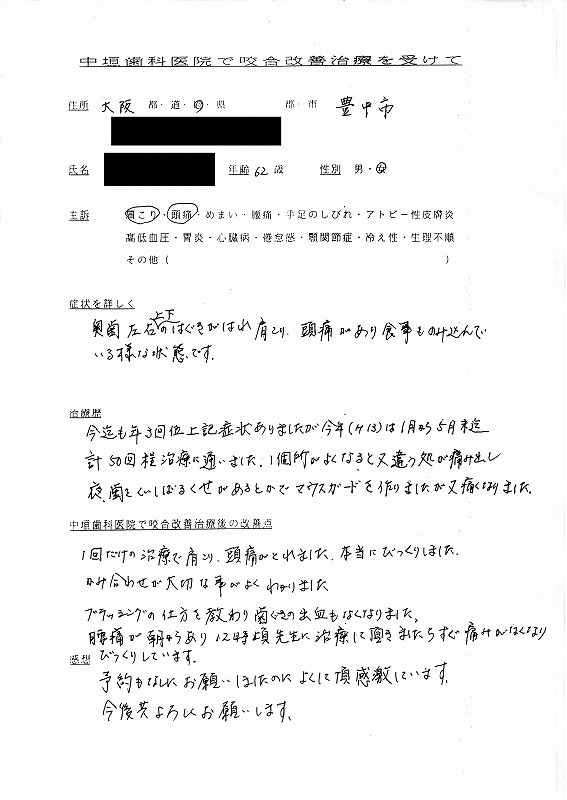 中垣歯科医院で咬合改善治療を受けて
住所 大阪 都・道・府・県 郡・市 豊中市
氏名 年齢 62 歳 性別 男・女
主訴 肩こり・頭痛・めまい・腰痛・手足のしびれ・アトピー性皮膚炎
高低血圧・胃炎・心臓病・倦怠感・顎関節症・冷え性・生理不順
その他( )
症状を詳しく
奥歯左右上下のはぐきがはれ肩こり、頭痛があり食事ものみ込んで
いる様な状態です。
治療歴
今迄も年3回位上記症状ありましたが今年(H13)は1月から5月末迄
計50回程治療に通いました。1個所がよくなると又違う処が痛み出し
夜、歯をくいしばるくせがあるとかでマウスガードを作りましたが又痛くなりました。
中垣歯科医院で咬合改善治療後の改善点
1回だけの治療で肩こり、頭痛がとれました。本当にびっくりしました。
かみ合わせが大切な事がよくわかりました
ブラッシングの仕方を教わり歯ぐきの出血もなくなりました。
腰痛が朝からあり12時頃先生に治療して頂きましたらすぐ痛みがなくなり
びっくりしています。
感想
予約もなしにお願いしましたのによくして頂感激しています。
今後共よろしくお願いします。